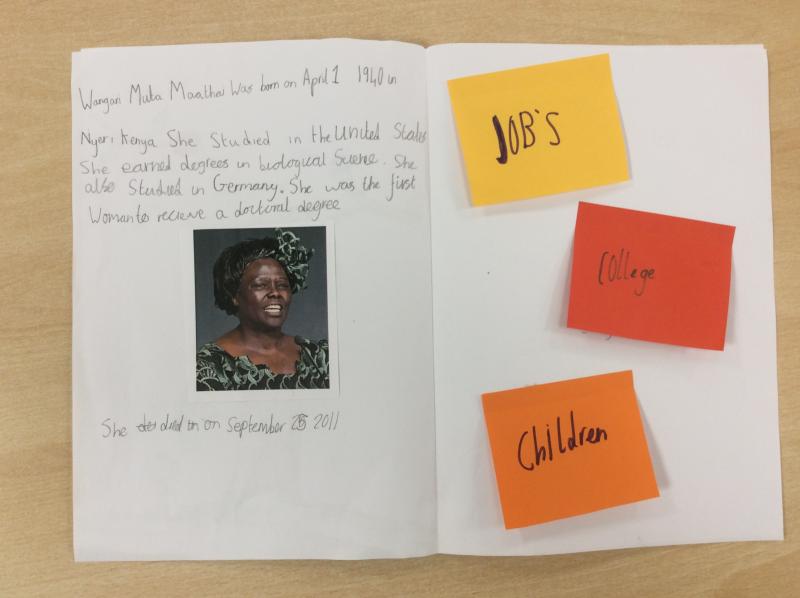 Wangari Muta Maathai Was born on April 1 1940 in
Nyeri Kenya She Studied in the United States
She earned degrees in biological Science. She
also Studied in Germany. She was the first
Woman to recieve a doctoral degree
She died on on September 25 2011
JOB'S
College
Children